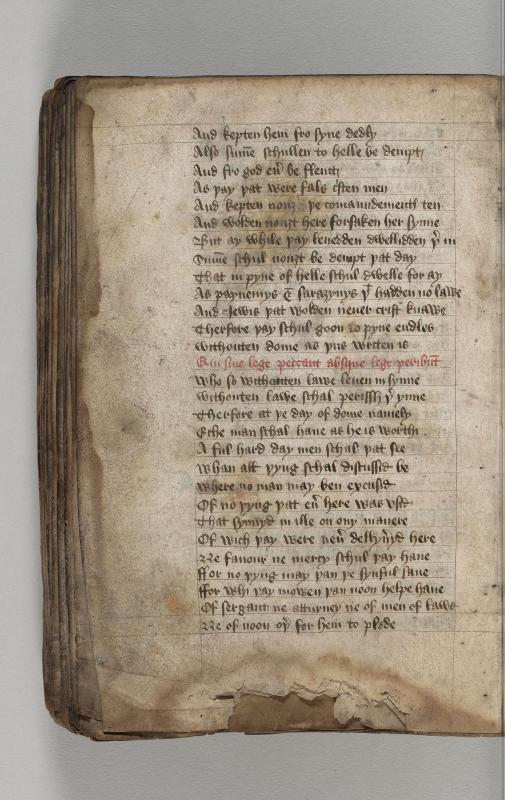 And kepten hem fro syne dedly
Also sum̄e schullen to helle be dempt
And fro god eu̾ be flemt
As þay þat were fals c̾sten men
And kepten nouȝt þe comaundementꝭ ten
And wolden nouȝt here forsaken her synne
But ay while þay leuedden dwellidden þ̾ in
Sum̄e schul nouȝt be dempt þat day
That in pyne of helle schul dwelle for ay
As paynemys & sarazynys þͭ hadden no lawe
And Jewis þat wolden neuer crist knawe
Therfore þay schul goon to pyne endles
withouten dome as þus writen is
Qui sine lege peccant absque lege peribūt
who so withouten lawe leuen in synne
withouten lawe schal perissh þ̾ ynne
Therfore at þe day of dome namely
Eche man schal haue as he is worthi
A ful hard day men schal þat se
whan all þyng schal discussid be
where no man may ben excusid
Of no þyng þat eu̾ here was vsid
That synnyd in ille on ony manere
Of wich þay were neu̾ delyu̾yd here
Ne fauour ne mercy schul þay haue
Ffor no þyng may þan þe synful saue
Ffor whi þay mowen þan noon helpe haue
Of sergant ne atturney ne of men of lawe
Ne of noon oþ̾ for hem to plede